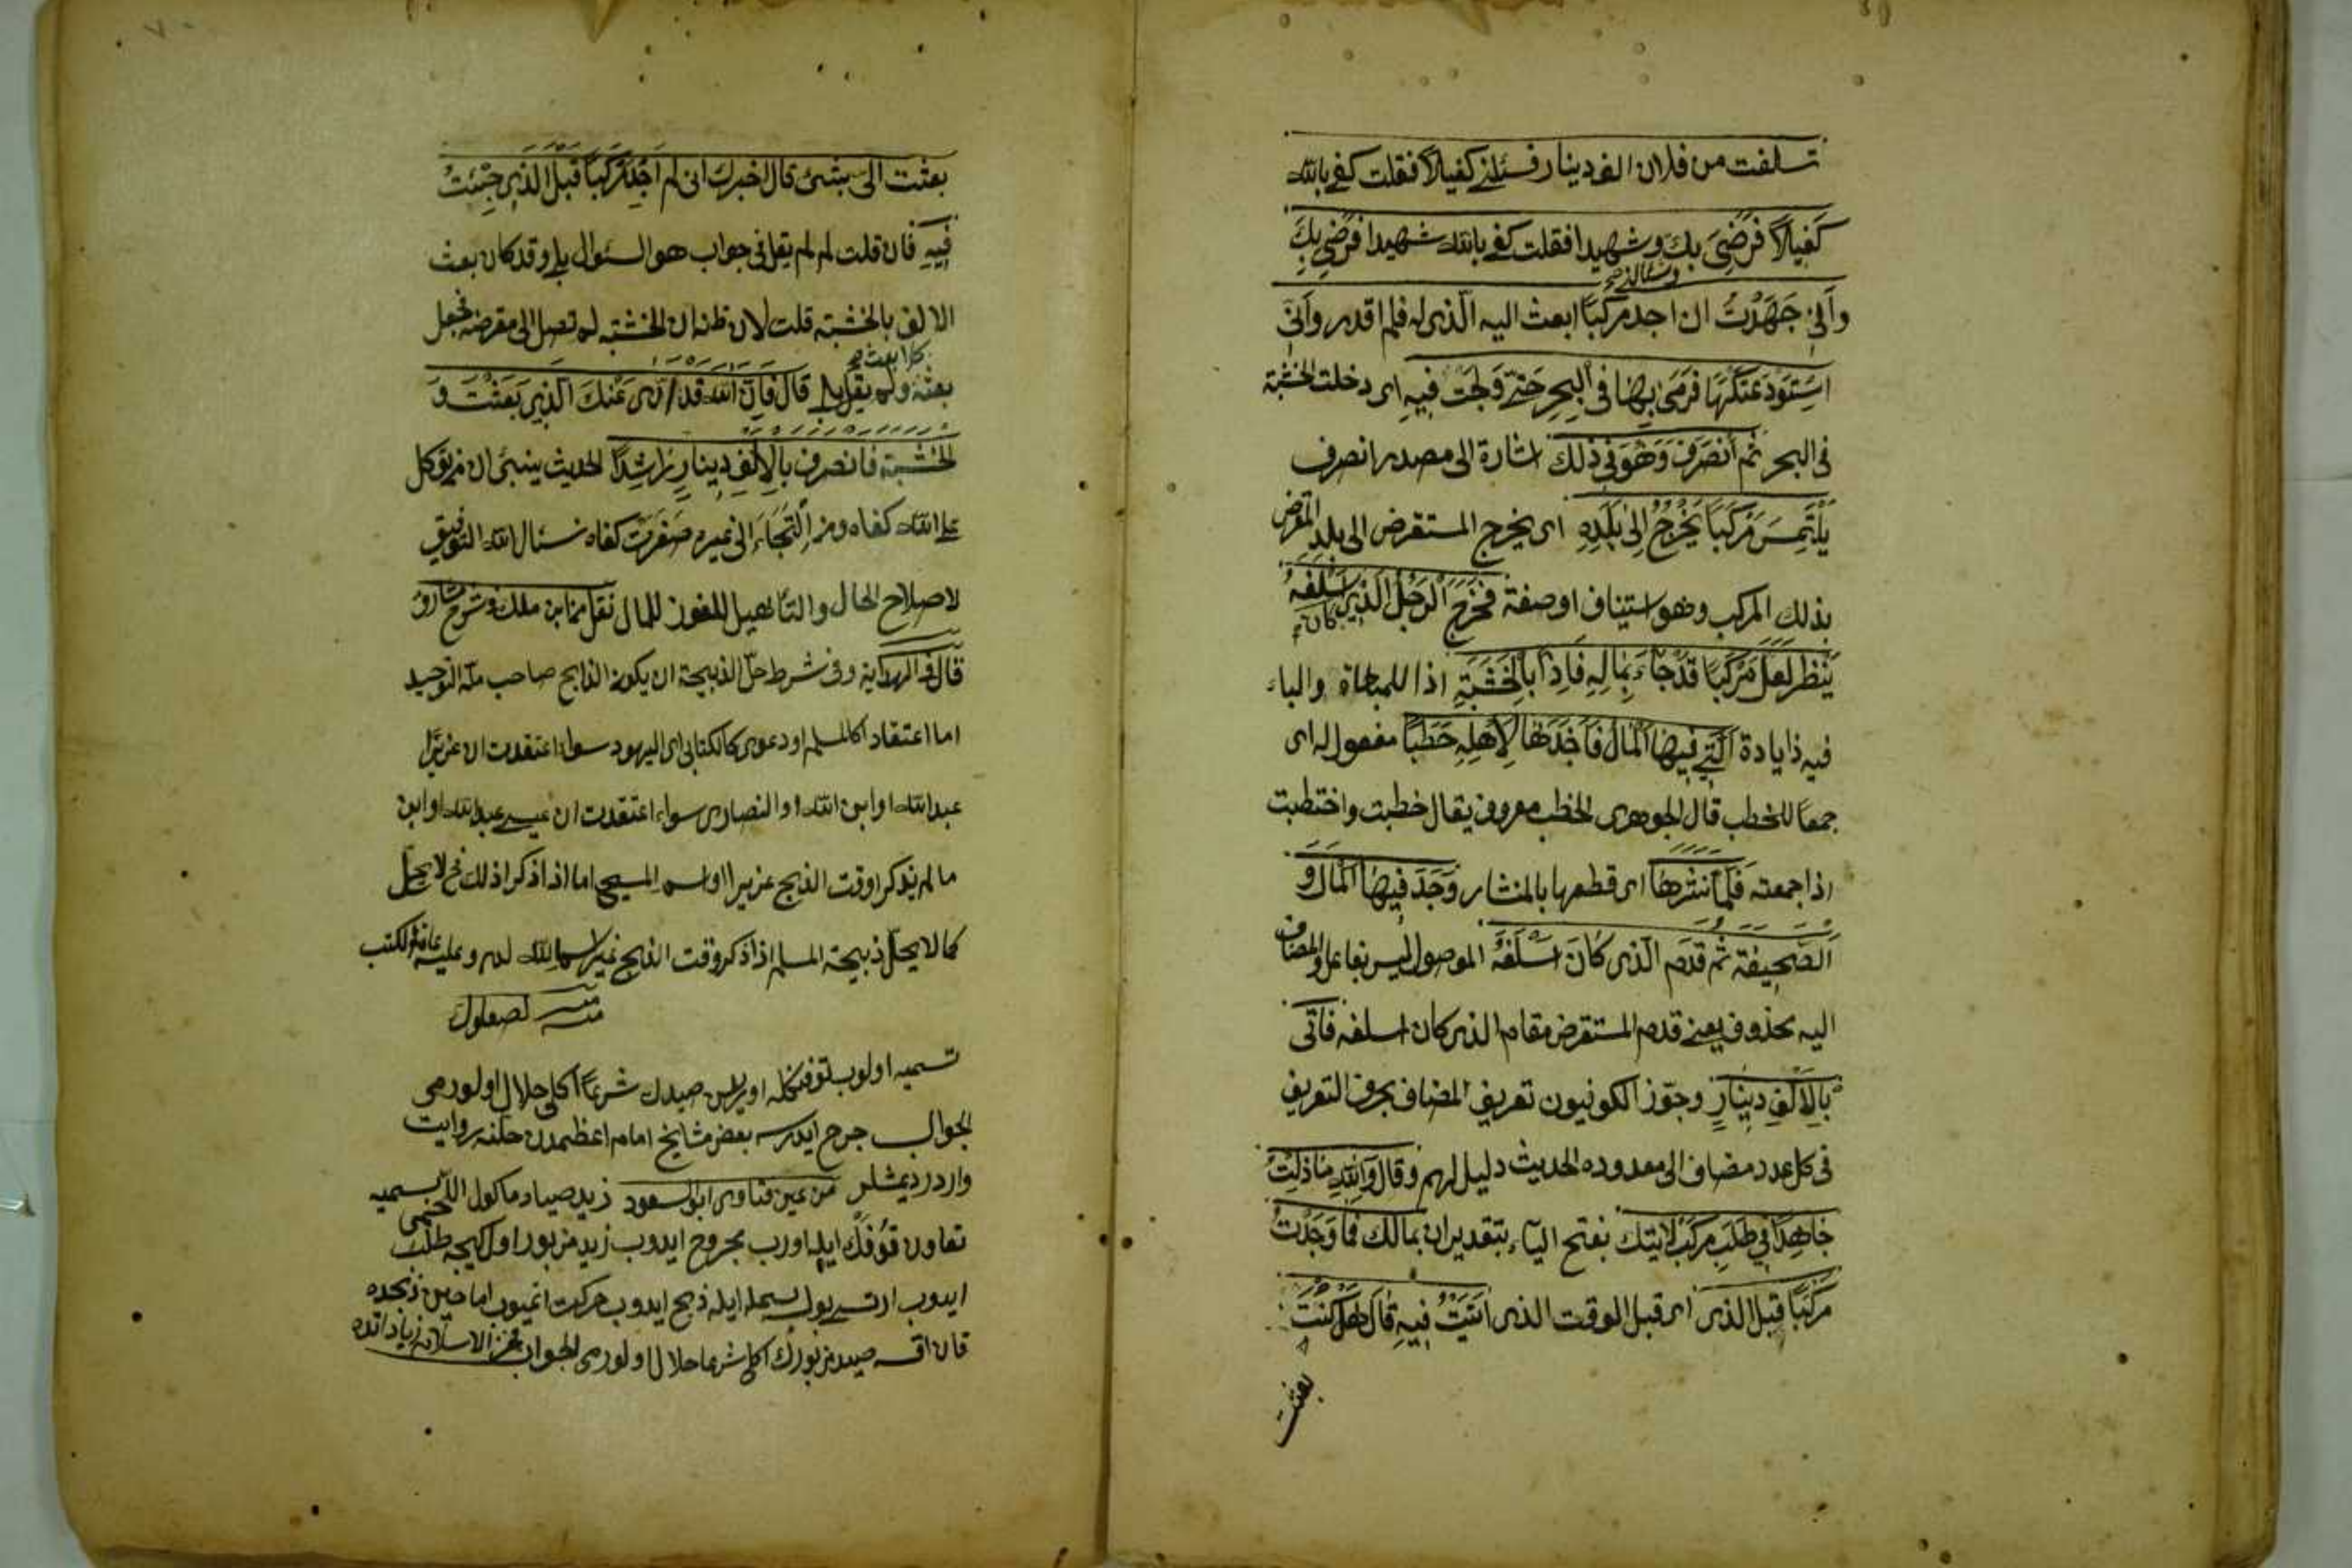 تسلفت من فلان الف دينار فسئلني كفيلاً فقلت كفى بالله
كَفيلاً فرَضِيَ بك وشهيدا فقلت كفى بالله شهيدا فرَضِي بِكَ
وسئالني صح
وَاَنِّى جَهَدْتُ ان اجد مركبًا ابعث اليه الّذى له فلم اقدر وَاَنِّى
اسْتَوْدَعْتُكَهَا فَرَمَى بِهَا فى اْلبحرِ حَتّى وَلَجَتْ فيهِ اى دخلت الخشبة
فى البحر ثم اَنصَرَفَ وَهُوَ فى ذٰلك اشارة الى مصدر انصرف
يَلْتَمِسُ مَركَبًا يَخْرُجُ اِلىٰ بَلَدِهِ اى يخرج المستقرض الى بلد المقرض
بذلك المركب وهو استيناف او صفة فَخَرَج الرَجُلُ الّذِى اَسْلَفَهُ
كان
يَنْظر لَعَلَّ مَرْكَبًا قَدْجَاءَ بِمَالِهِ فَاِذَا بِالْخَشَبَةِ اذا للمفاجاة والباء
فيه زايادة اَلَّتِى فِيهَا الْمَالُ فَاَخَذَهَا لِاَهْلِهِ حَطَبًا مفعول له اى
جمعًا للحطب قال الجوهرى الحطب معروف يقال حطبت واحتطبت
اذا جمعته فَلَمَّا نَشَرهَا اى قطعها بالمنشار وَجَدَ فِيهَا الْمَالَ وَ
اَلصَّحِيفَةَ ثُم قَدَم الّذى كَانَ اسْلَفَهُ الموصول ليس بفاعل والمضاف
اليه محذوف يعنى قدم المستقرض مقام الذى كان اسلفه فَاَتَى
بِالْاَلْفِ دِينَارٍ وجوّز الكوفيون تعريف المضاف بحرف التعريف
فى كل عدد مضاف الى معدوده الحديث دليل لهم وقال وَاللهِ مَازِلْتُ
جَاهِدًا فِي طَلَبِ مَركَب لِاٰتِيَكَ بفتح الياء بتقدير ان بمالك فَمَا وَجَدْتُ
مَركَبًا قبل الذى اى قبل الوقت الذى اَتَيْتُ فِيهِ قَالَ هَل كُنْتَ
بعثت
بعثت الى بشئ قال اخبرك انى لم اَجِدْ مَركَبًا قَبْلَ الّذِى جِئتُ
فِيهِ فان قلت لم لم يقل فى جواب هو السئوال بلى وقد كان بعث
الالف بالخشبة قلت لان ظنه ان الخشبة لم تصل الى مقرضه فجعل
كلا بعث صح
بعثه ولم يقل بلى قَالَ فَاِنَّ اللهَ قَدْ اَدّى عَنْكَ الَّذِى بَعَثْتَ وَ
الخَشَبَة فانصرف بالاَلْفِ دِينَارٍ رَاشِدًا الحديث ينبئ ان من توكل
على الله كفاه ومن اِلْتَجَاءَ الى غيره صَفَرَت كفاه نسئال الله التوفيق
لاصلاح الحال والتأهيل للفوز للمال نقل من ابن ملك فى شرح مشارق
قال فى الهداية وفى شرط حلّ الذبيحة ان يكون الذابح صاحب ملة التوحيد
اما اعتقاد اكالمسلم او دعوى كالكتابى اى اليهود سواء اعتقدت ان عزيرًا
عبد الله او ابن الله او النصارى سواء اعتقدت ان عيسى عبد الله او ابن
ما لم يذكر اوقت الذبح عزيرا او اسم المسيح اما اذا ذكر اذلك فح لا يحلّ
كما لا يحلّ ذبيحة المسلم اذا ذكر وقت الذبح غير اسم الله وعليه عامة الكتب
منه لصعلوك
تسميه اولوب تفنكله اوريلن صيدك شرعاً اكلى حلال اولورمى
الجواب جرح ايدرسه بعض مشايخ امام اعظمدن حلنه روايت
واردر ديمشلر من عين فتاوى ابو السعود زيد صياد ماكول اللحمى بسميه
تعاون تفنك ايله اورب مجروح ايدوب زيد مزبور اولكيجه طلب
ايدوب ارتسى بولب بسمله ايله ذبح ايدوب حركت اتميوب اما حين ذبحده
قان اقسه صيد مزبورك اكلى شرعا حلال اولورمى الجواب فخر الاسلام زياداتده